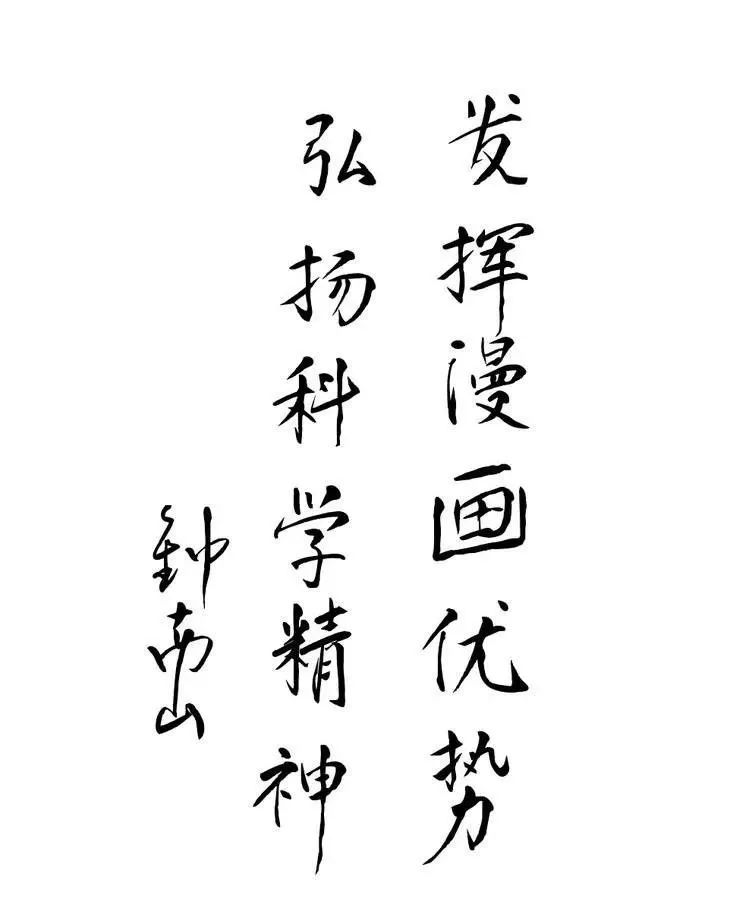 发挥漫画优势
弘扬科学精神
钟南山